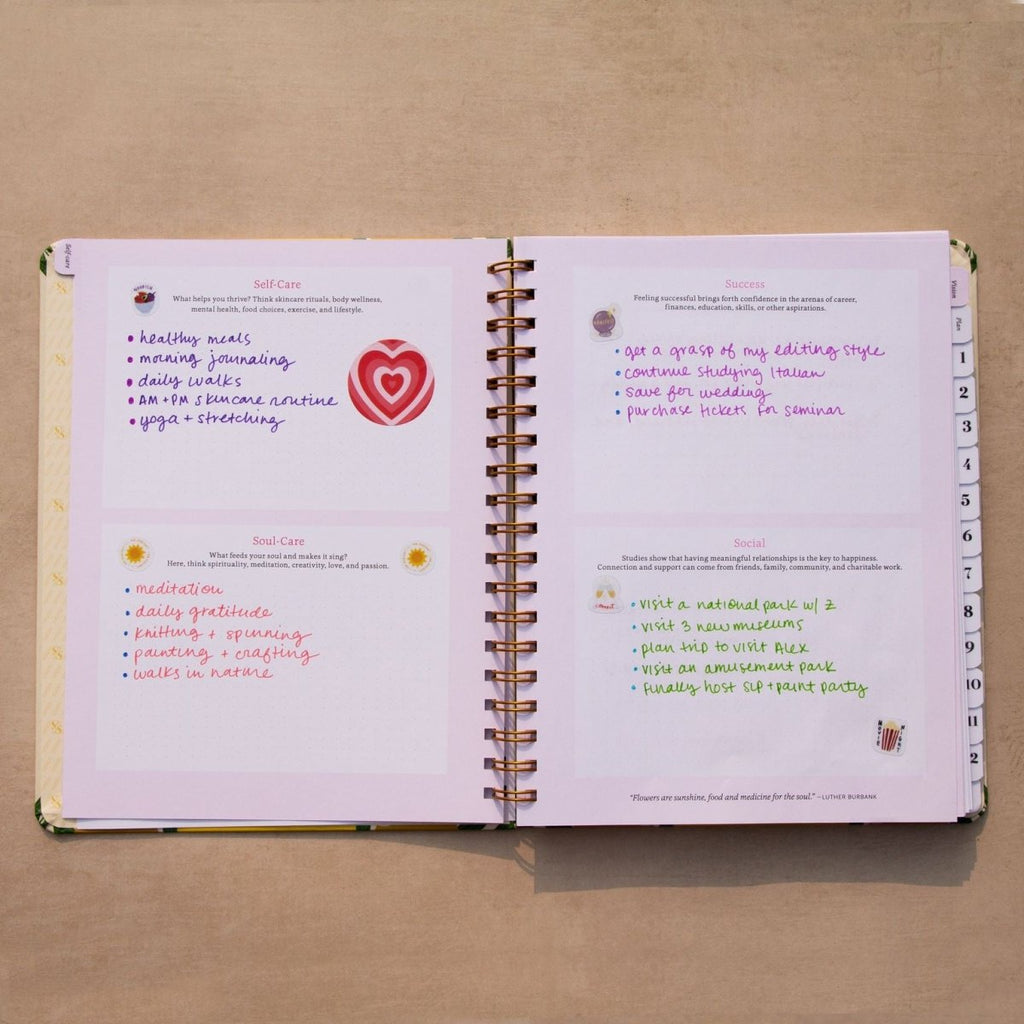 Self-care
Self-Care
What helps you thrive? Think skincare rituals, body wellness,
mental health, food choices, exercise, and lifestyle.
• healthy meals
• morning journaling
• daily walks
• AM + PM skincare routine
• yoga + stretching
Soul-Care
What feeds your soul and makes it sing?
Here, think spirituality, meditation, creativity, love, and passion.
• meditation
• daily gratitude
• knitting + spinning
• painting + crafting
• walks in nature
Success
Feeling successful brings forth confidence in the arenas of career,
finances, education, skills, or other aspirations.
• get a grasp of my editing style
• continue studying Italian
• save for wedding
• purchase tickets for seminar
Social
Studies show that having meaningful relationships is the key to happiness.
Connection and support can come from friends, family, community, and charitable work.
• visit a national park w/ Z
• visit 3 new museums
• plan trip to visit Alex
• visit an amusement park
• finally host sip + paint party
MOVIE NIGHT
"Flowers are sunshine, food and medicine for the soul." —LUTHER BURBANK
Vision
Plan
1
2
3
4
5
6
7
8
9
10
11
2